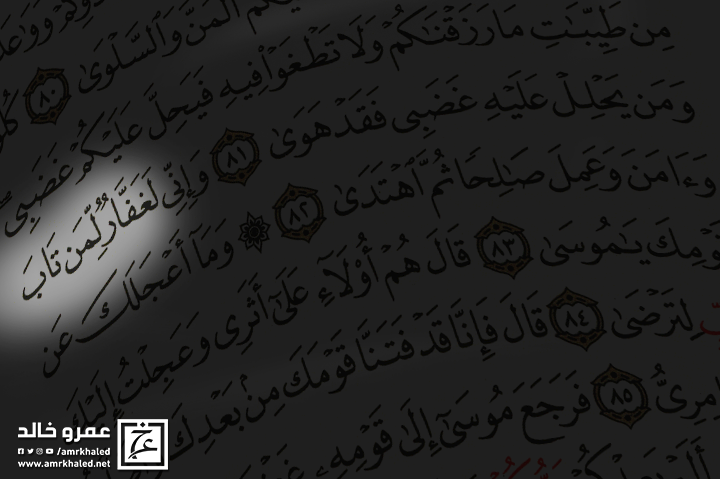 كُم الْمَنَّ وَالسَّلْوَىٰ ٨٠
مِن طَيِّبَٰتِ مَا رَزَقْنَٰكُمْ وَلَا تَطْغَوْا۟ فِيهِ فَيَحِلَّ عَلَيْكُمْ غَضَبِى
وَمَن يَحْلِلْ عَلَيْهِ غَضَبِى فَقَدْ هَوَىٰ ٨١ وَإِنِّى لَغَفَّارٌ لِّمَن تَابَ
وَءَامَنَ وَعَمِلَ صَٰلِحًا ثُمَّ ٱهْتَدَىٰ ٨٢ وَمَآ أَعْجَلَكَ عَن
قَوْمِكَ يَٰمُوسَىٰ ٨٣ قَالَ هُمْ أُو۟لَآءِ عَلَىٰٓ أَثَرِى وَعَجِلْتُ إِلَيْكَ
لِتَرْضَىٰ ٨٤ قَالَ فَإِنَّا قَدْ فَتَنَّا قَوْمَكَ مِنۢ بَعْدِكَ
٨٥ فَرَجَعَ مُوسَىٰٓ إِلَىٰ قَوْمِهِۦ
عمرو خالد
/amrkhaled
www.amrkhaled.net